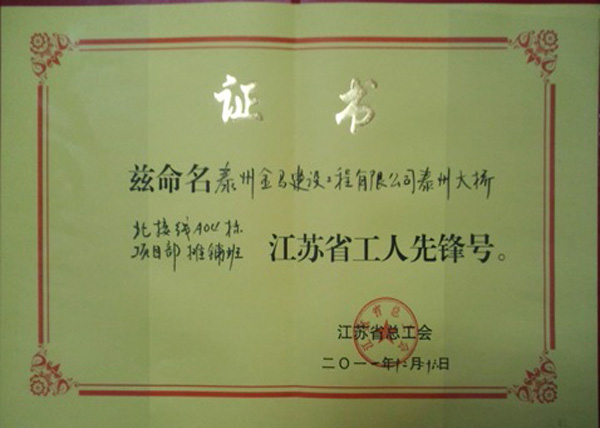 证书
兹命名泰州金马建设工程有限公司泰州大桥
北接线A04标
项目部摊铺班 江苏省工人先锋号。
江苏省总工会
二〇一一年12月16日